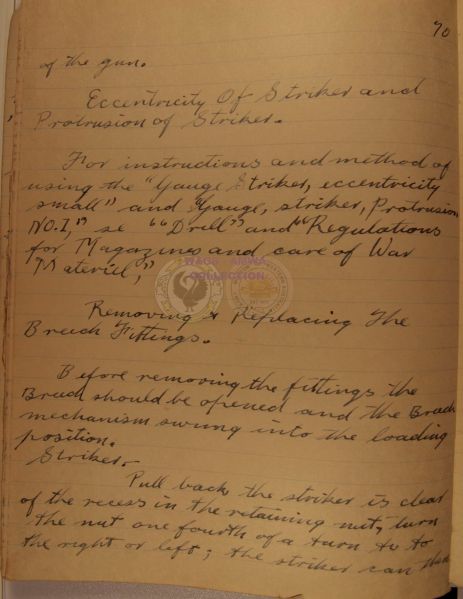 70
of the gun.
Eccentricity Of Striker and
Protrusion of Striker.
For instructions and method of
using the "Gauge Striker, eccentricity
small" and "Gauge, striker, Protrusion
NO.I," se ""Drill" and "Regulations
for Magazines and care of War
Materiel,"
WAGS - AMWA
COLLECTION
Removing & Replacing The
Breech Fittings.
Before removing the fittings the
Breech should be opened and the Breech
mechanism swung into the loading
position.
Striker.
Pull back the striker is clear
of the recess in the retaining nut, turn
the nut one fourth of a turn to to
the right or left; the striker can then